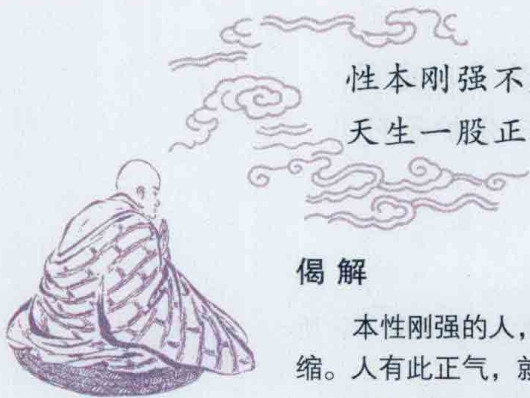 性本刚强不
天生一股正
偈解
本性刚强的人，
缩。人有此正气，就